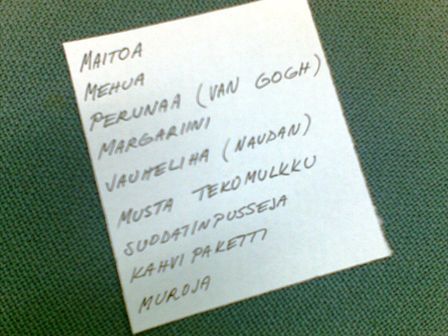 MAITOA
MEHUA
PERUNAA (VAN GOGH)
MARGARIINI
JAUHELIHA (NAUDAN)
MUSTA TEKOMULKKU
SUODATINPUSSEJA
KAHVIPAKETTI
MUROJA